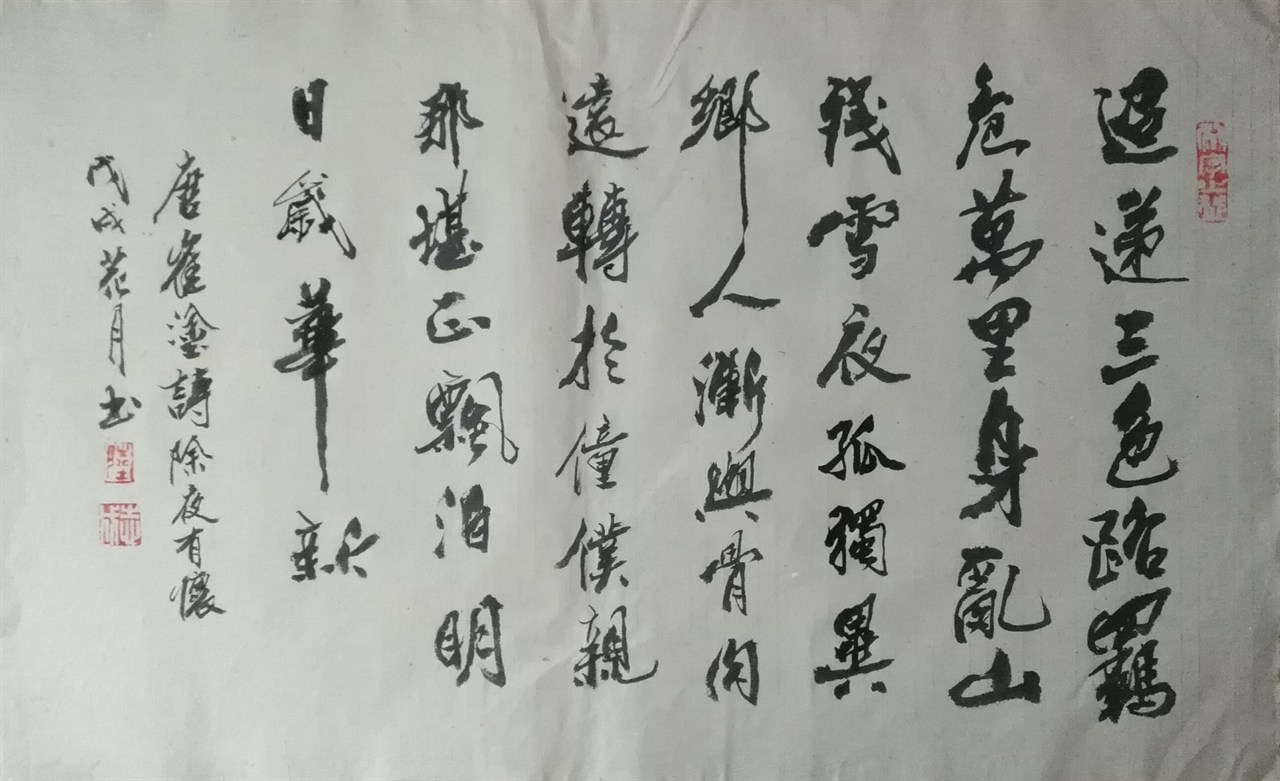 迢递三色路羈
危萬里身亂山
殘雪夜孤獨異
鄉人漸與骨肉
遠轉於僮僕親
那堪正飄泊明
日歲華新
唐崔塗詩除夜有懷
戊戌花月书